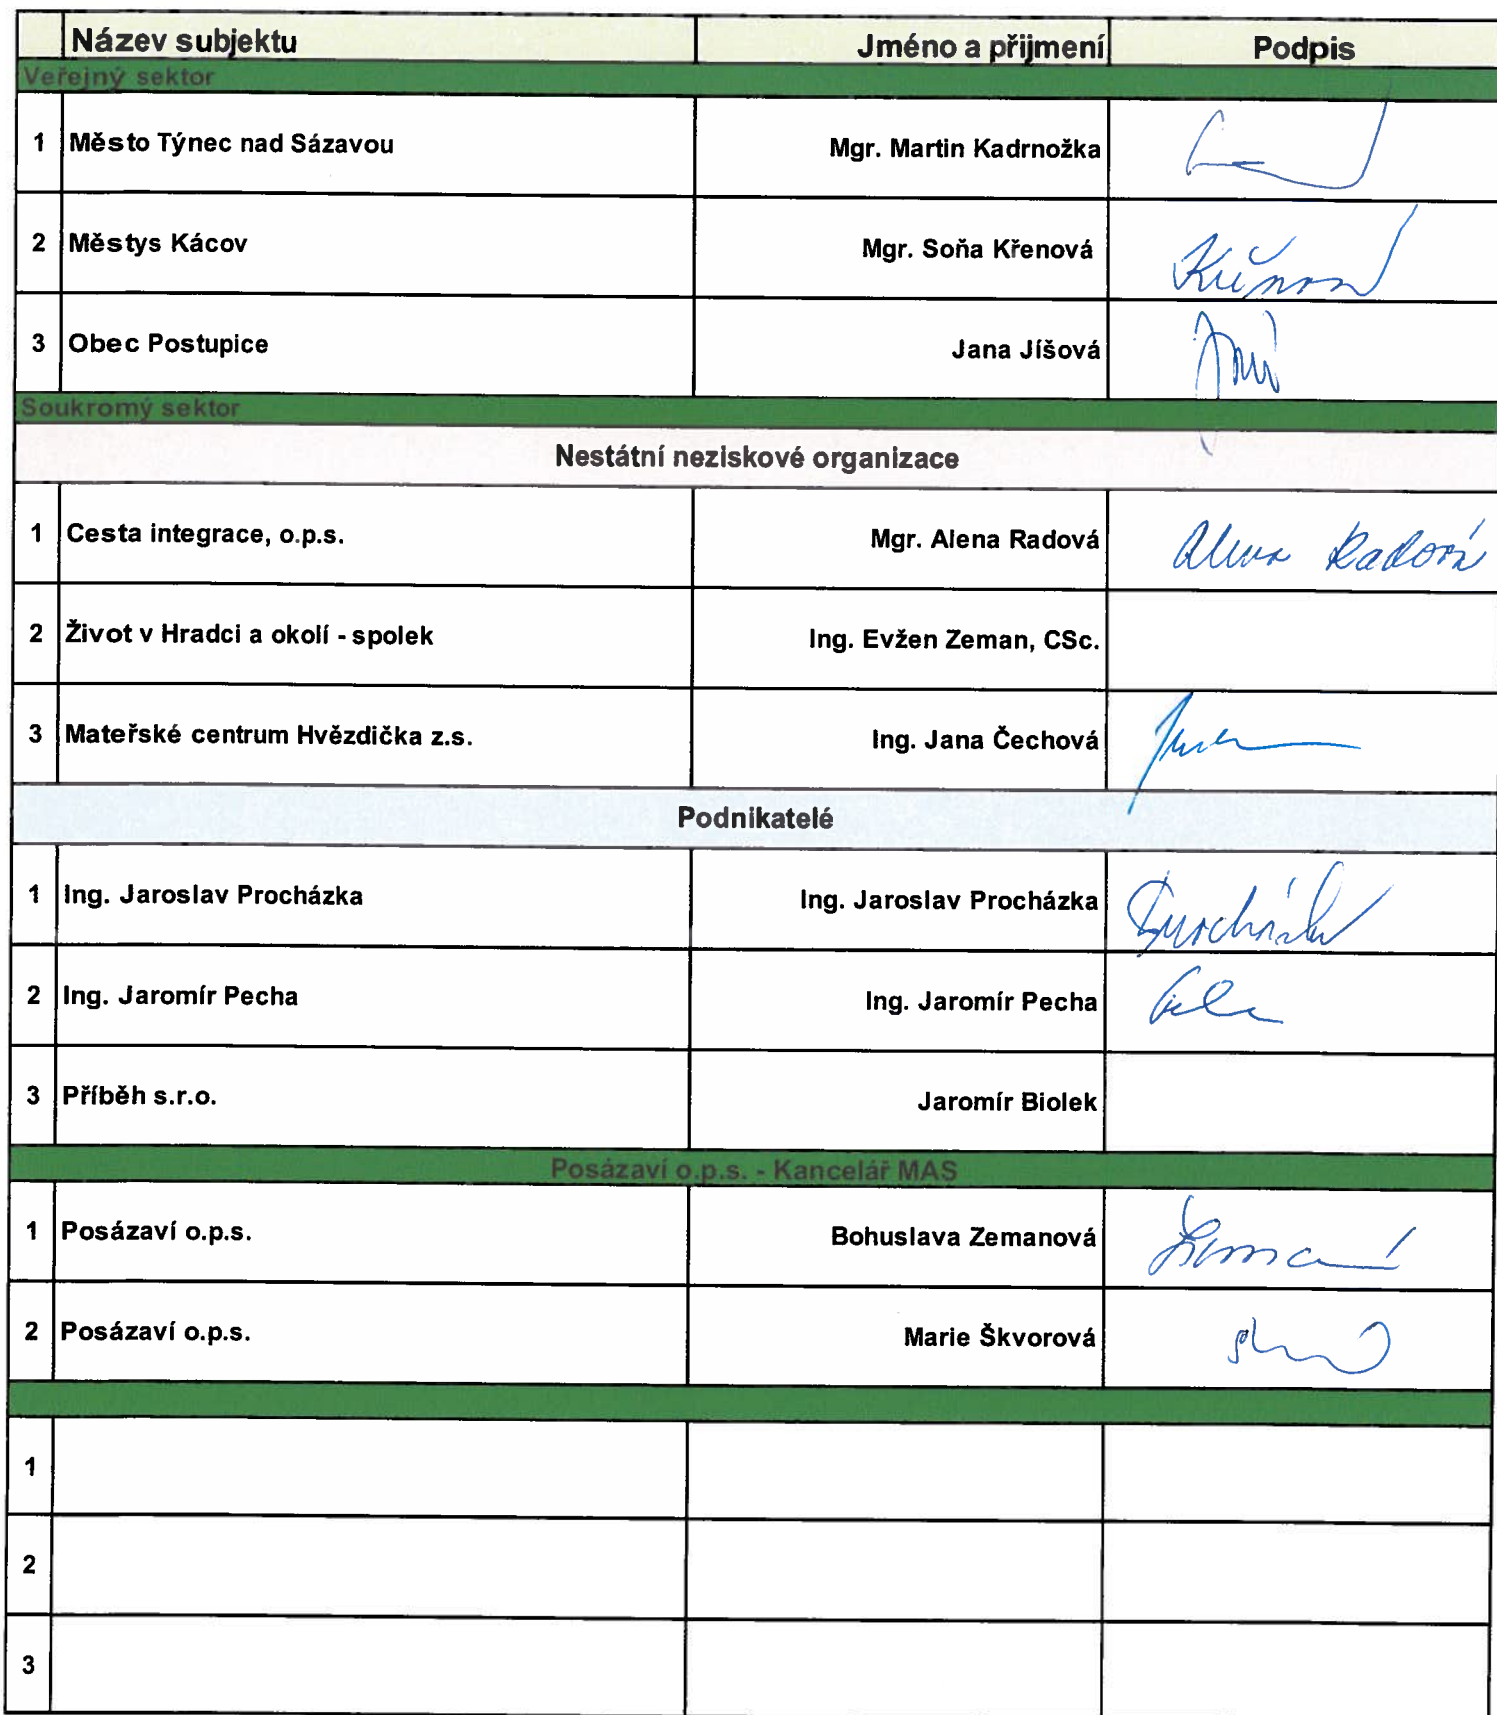 Název subjektu Jméno a přijmení Podpis
Veřejný sektor
1 Město Týnec nad Sázavou Mgr. Martin Kadrnožka
2 Městys Kácov Mgr. Soňa Křenová
3 Obec Postupice Jana Jíšová
Soukromý sektor
Nestátní neziskové organizace
1 Cesta integrace, o.p.s. Mgr. Alena Radová Alena Radová
2 Život v Hradci a okolí - spolek Ing. Evžen Zeman, CSc.
3 Mateřské centrum Hvězdička z.s. Ing. Jana Čechová
Podnikatelé
1 Ing. Jaroslav Procházka Ing. Jaroslav Procházka
2 Ing. Jaromír Pecha Ing. Jaromír Pecha
3 Příběh s.r.o. Jaromír Biolek
Posázaví o.p.s. - Kancelář MAS
1 Posázaví o.p.s. Bohuslava Zemanová
2 Posázaví o.p.s. Marie Škvorová
1
2
3